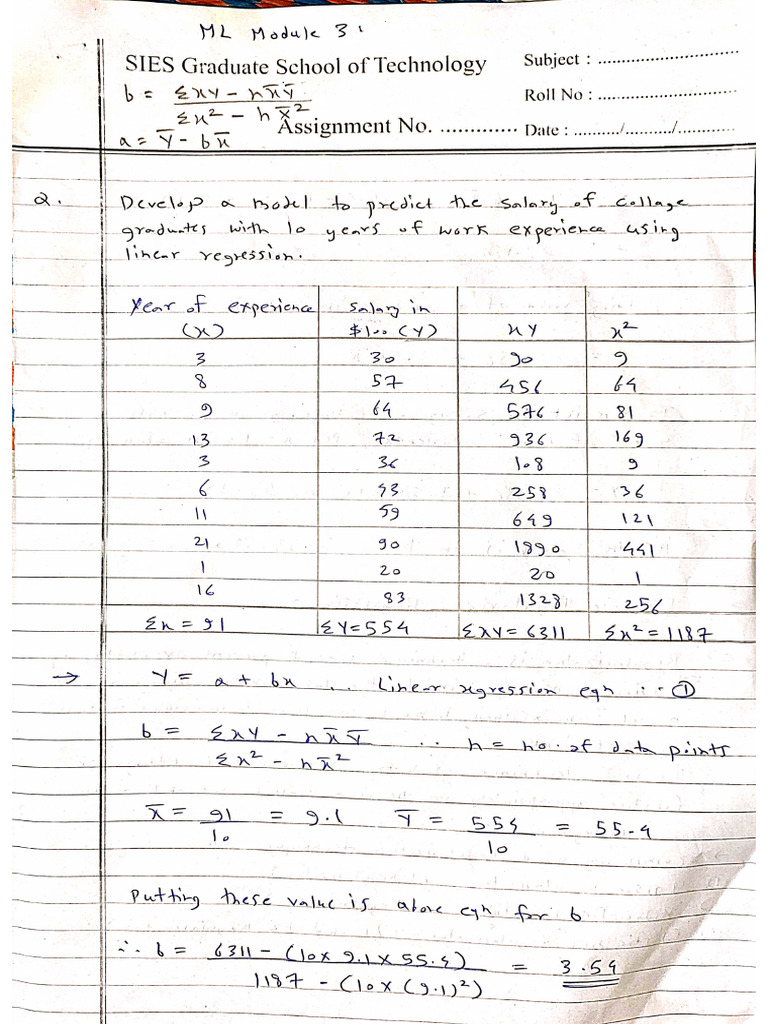 ML Module 3:
SIES Graduate School of Technology
Subject : ................................
b = Σxy - nx̄ȳ / Σx² - nx̄²
Roll No : ................................
a = ȳ - bx̄
Assignment No. .............
Date : ........../........../............
2. Develop a model to predict the salary of collage
graduates with 10 years of work experience using
linear regression.
Year of experience (x) | Salary in $100 (Y) | xy | x²
3 | 30 | 90 | 9
8 | 57 | 456 | 64
9 | 64 | 576 | 81
13 | 72 | 936 | 169
3 | 36 | 108 | 9
6 | 43 | 258 | 36
11 | 59 | 649 | 121
21 | 90 | 1890 | 441
1 | 20 | 20 | 1
16 | 83 | 1328 | 256
Σx = 91 | ΣY = 554 | Σxy = 6311 | Σx² = 1187
→ Y = a + bx .. Linear regression eqn .. ①
b = Σxy - nx̄ȳ / Σx² - nx̄² .. n = no. of data points
x̄ = 91 / 10 = 9.1 ȳ = 554 / 10 = 55.4
Putting these value is above eqn for b
∴ b = 6311 - (10 x 9.1 x 55.4) / 1187 - (10 x (9.1)²) = 3.54